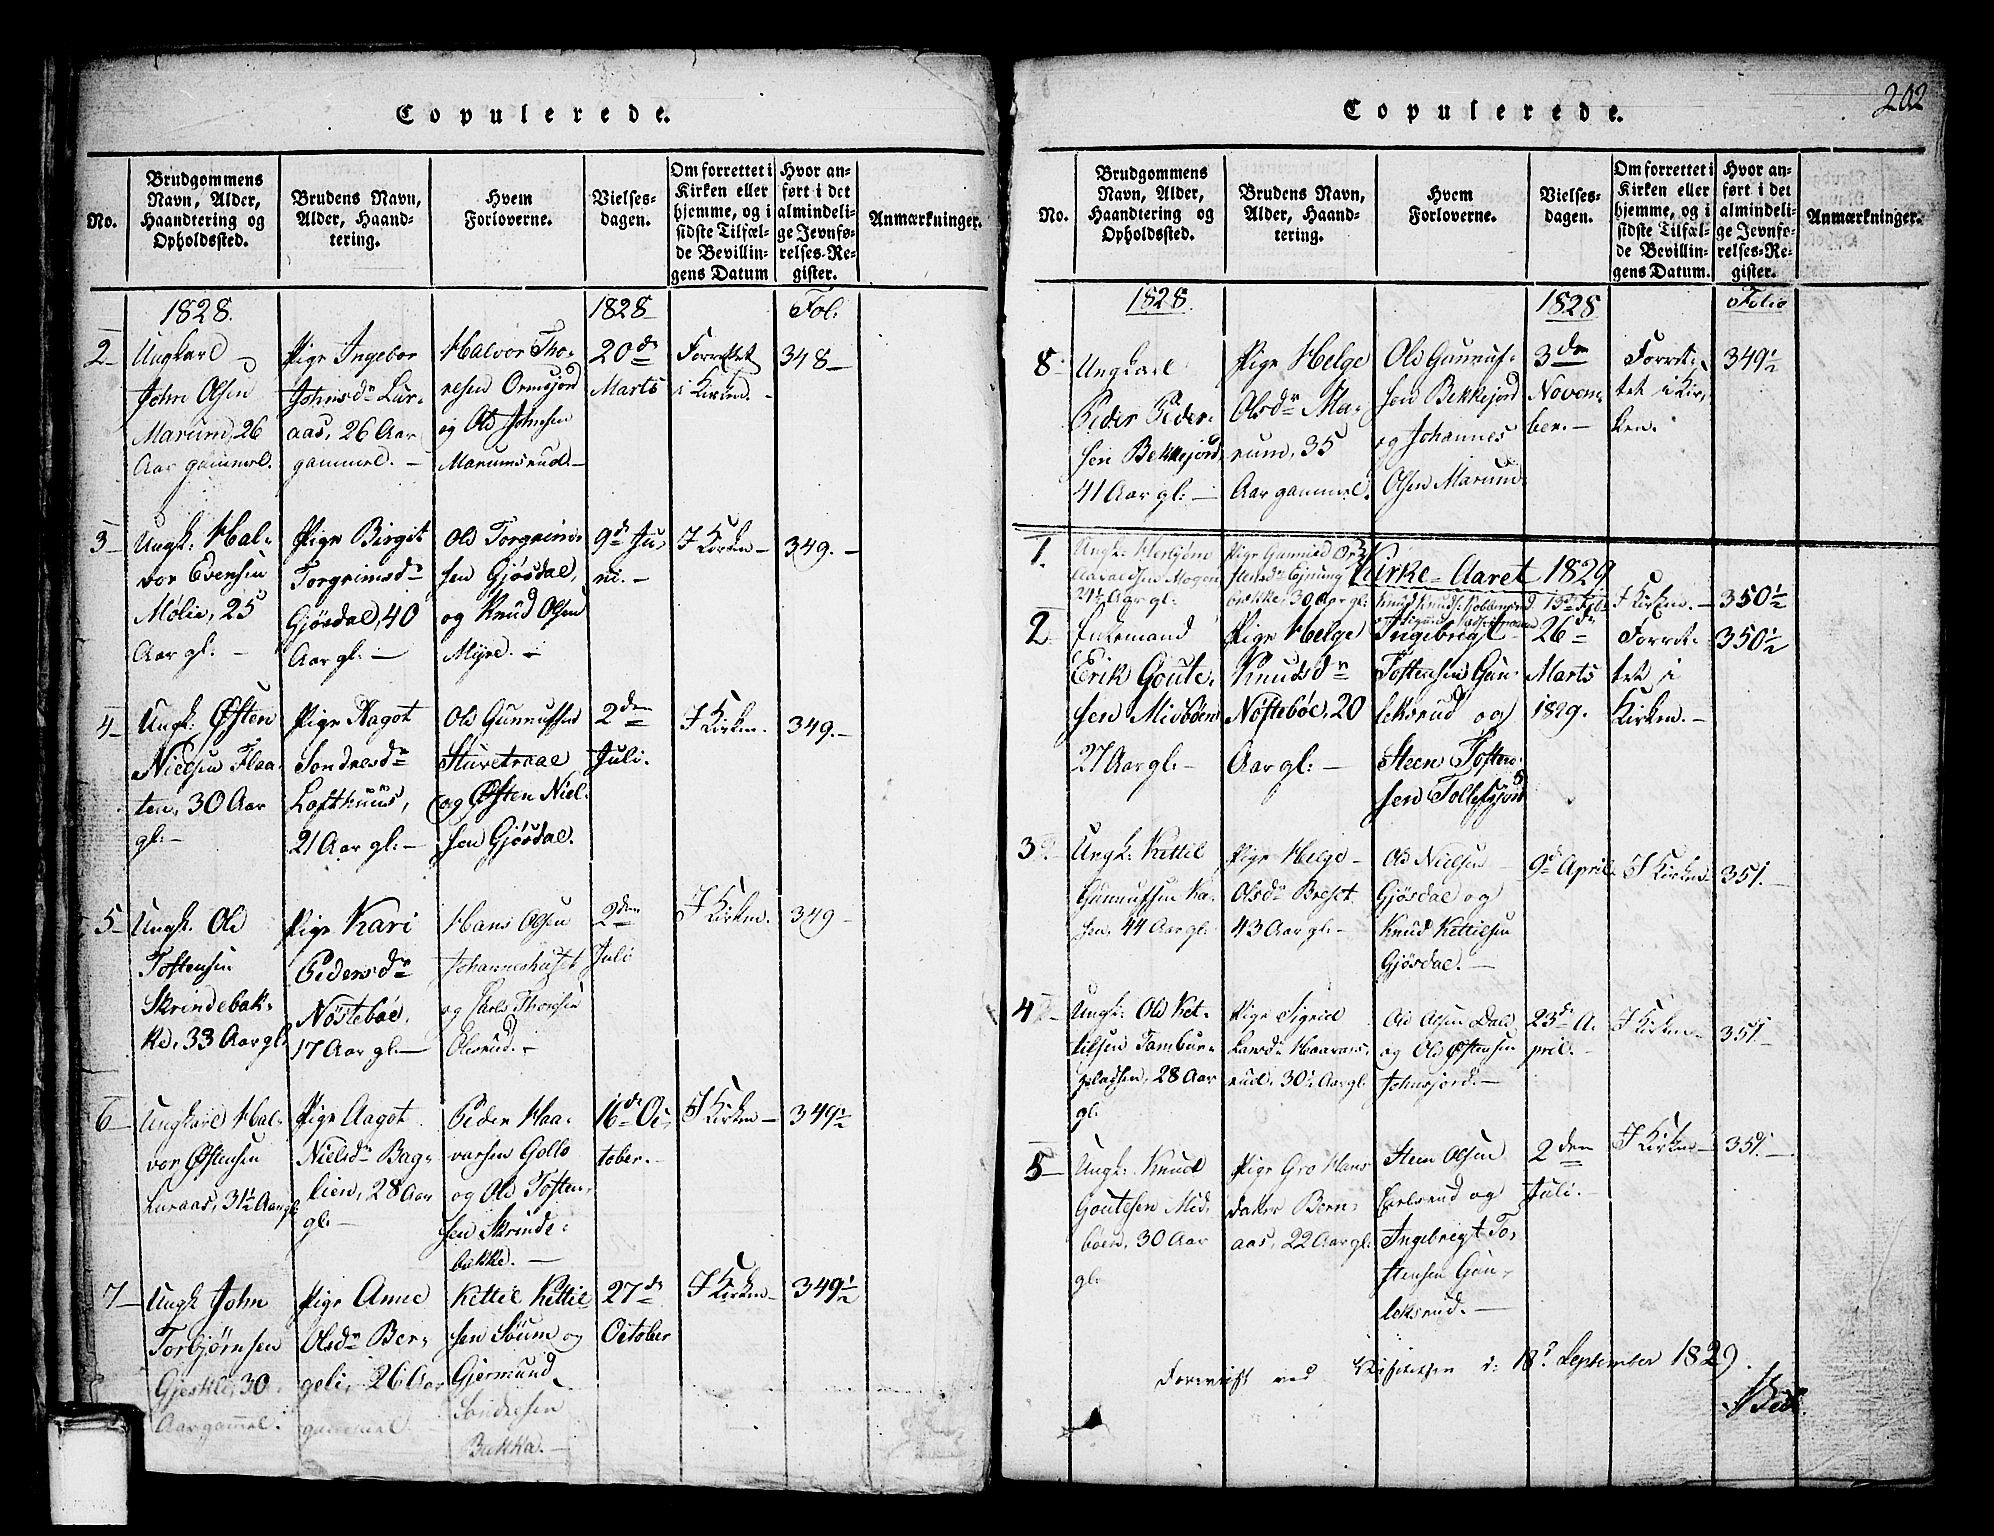 Copulerede.
No.
Brudgommens
Navn, Alder,
Haandtering og
Opholdssted.
Brudens Navn,
Alder, Haand-
tering.
Hvem
Forloverne.
Vielses-
dagen.
Om forrettet i
Kirken eller
hjemme, og i
sidste Tilfæl-
de Bevillin-
gens Datum
Hvor an-
ført i det
almindeli-
ge Jevnfø-
relses-Re-
gister.
Anmærkninger.
1828.
1828
Fol:
2
Ungkarl
John Olsen
Marum, 26
Aar gammel.
Pige Ingebor
Johnsdr Lur-
aas, 26 Aar
gammel. –
Halvor Tho-
resen Ormsjord
og Ole Johnsen
Marumsrud. –
20de
Marts
Forrettet
i Kirken.
348 –
3
Ungk: Hal-
vor Evensen
Mølie, 25
Aar gl: –
Pige Birgit
Torgrimsdr
Gjøsdal, 40
Aar gl: –
Ole Torgrim-
sen Gjøsdal,
og Knud Olsen
Myre. –
9de Ju-
ni. –
I Kirken –
349. –
4
Ungk: Østen
Nielsen Flaa-
ten, 30 Aar
gl: –
Pige Aagot
Sondresdr
Lofthuus,
21 Aar gl: –
Ole Gunnufsen
Sturetraae
og Østen Niel-
sen Gjøsdal.
2den
Juli.
I Kirken.
349. –
5
Ungk. Ole
Tostensen
Skrindebak-
ke, 33 Aar gl:
Pige Kari
Pedersdr
Nöstebøe,
17 Aar gl: –
Hans Olsen
Johanneshuset
og Thoresen
2den
Juli
I Kirken.
349 –
6
Ungkarl Hal-
vor Østensen
Luraas, 31½ Aar gl
Pige Aagot
Nielsdr Bag-
lien, 28 Aar
gl: –
Peder Haa-
varsen Gollo
og Ole Tosten-
sen Skrinde-
bakke. –
16de Oc-
tober. –
I Kirken –
349½
7
Ungk John
Torbjørnsen
Gjeskli, 30
Aar gammel.
Pige Anne
Olsdr Ber-
geli, 26 Aar
gammel
Kittil Kittil
sen Söum og
Gjermund
Sondresen
Bakka. –
27de
October
I Kirken –
349½
Copulerede.
202
No.
Brudgommens
Navn, Alder,
Haandtering og
Opholdssted.
Brudens Navn,
Alder, Haand-
tering.
Hvem
Forloverne.
Vielses-
dagen.
Om forrettet i
Kirken eller
hjemme, og i
sidste Tilfæl-
de Bevillin-
gens Datum.
Hvor an-
ført i det
almindeli-
ge Jevnfø-
relses-Re-
gister.
Anmærkninger.
1828.
1828
Folio
8
Ungkarl
Peder Peder-
sen Bekkejord,
41 Aar gl: –
Pige Helge
Olsdr Ma-
rum, 35
Aar gammel.
Ole Gunnuf-
sen Bekkejord
og Johannes
Olsen Marum
3den
Novem-
ber. –
Forret-
tet i Kir-
ken.
349½
Kirke-Aaret 1829
1.
Aar gl:
Pige Gunnild
I Kirken. –
350½
2
Enkemand
Erik Goute-
sen Midbøen
27 Aar gl: –
Pige Helge
Knudsdr
Nöstebøe, 20
Aar gl: –
Ingebrigt
Tostensen Gun-
leksrud og
Steen Tosten-
sen Tollefsjord
26de
Marts
1829.
Forret-
tet i
Kirken. –
350½
3
Ungk: Kittil
Gunnufsen
44 Aar gl:
Pige Helge
Olsdr
43 Aar gl: –
Ole Nielsen
Gjøsdal og
Knud Kittilsen
Gjøsdal. –
9de April
I Kirken
351. –
4
Ungk: Ole Ket-
tilsen Tambur-
28 Aar
gl:
Pige Sigrid
Larsdr Haavars-
rud, 30½ Aar gl.
Ole Olsen Dale
og Ole Østensen
Johnsjord. –
23de A-
pril. –
I Kirken –
351.
5
Ungk: Knud
Goutesen Mid-
böen, 30 Aar
gl:
Pige Gro Hans
datter Bern-
aas, 22 Aar gl:
Steen Olsen
Carlsrud og
Ingebrigt To-
stensen Gun-
leksrud. –
2den
Juli. –
I Kirken –
351. –
Foreviist ved Visitatsen d: 18d September 1829.